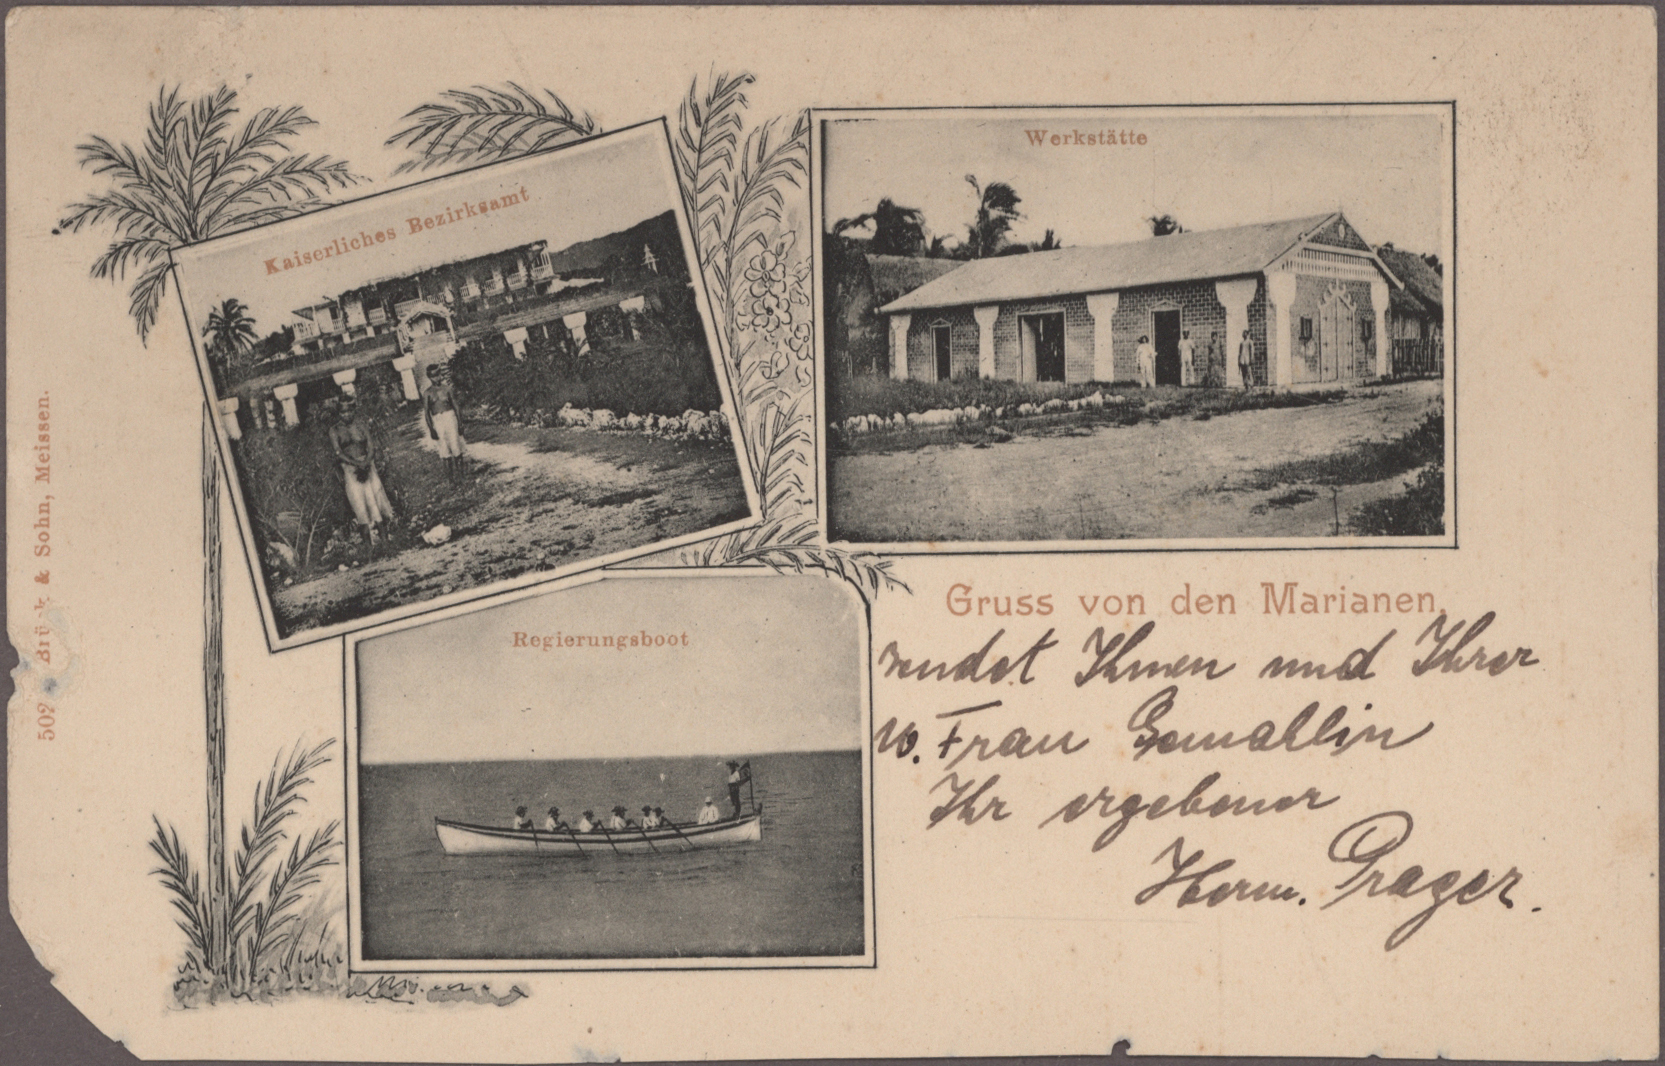 Kaiserliches Bezirksamt
Werkstätte
Regierungsboot
Gruss von den Marianen,
sendet Ihnen und Ihrer
w. Frau Gemahlin
Ihr ergebener
Herm. Prager.
& Sohn, Meissen.